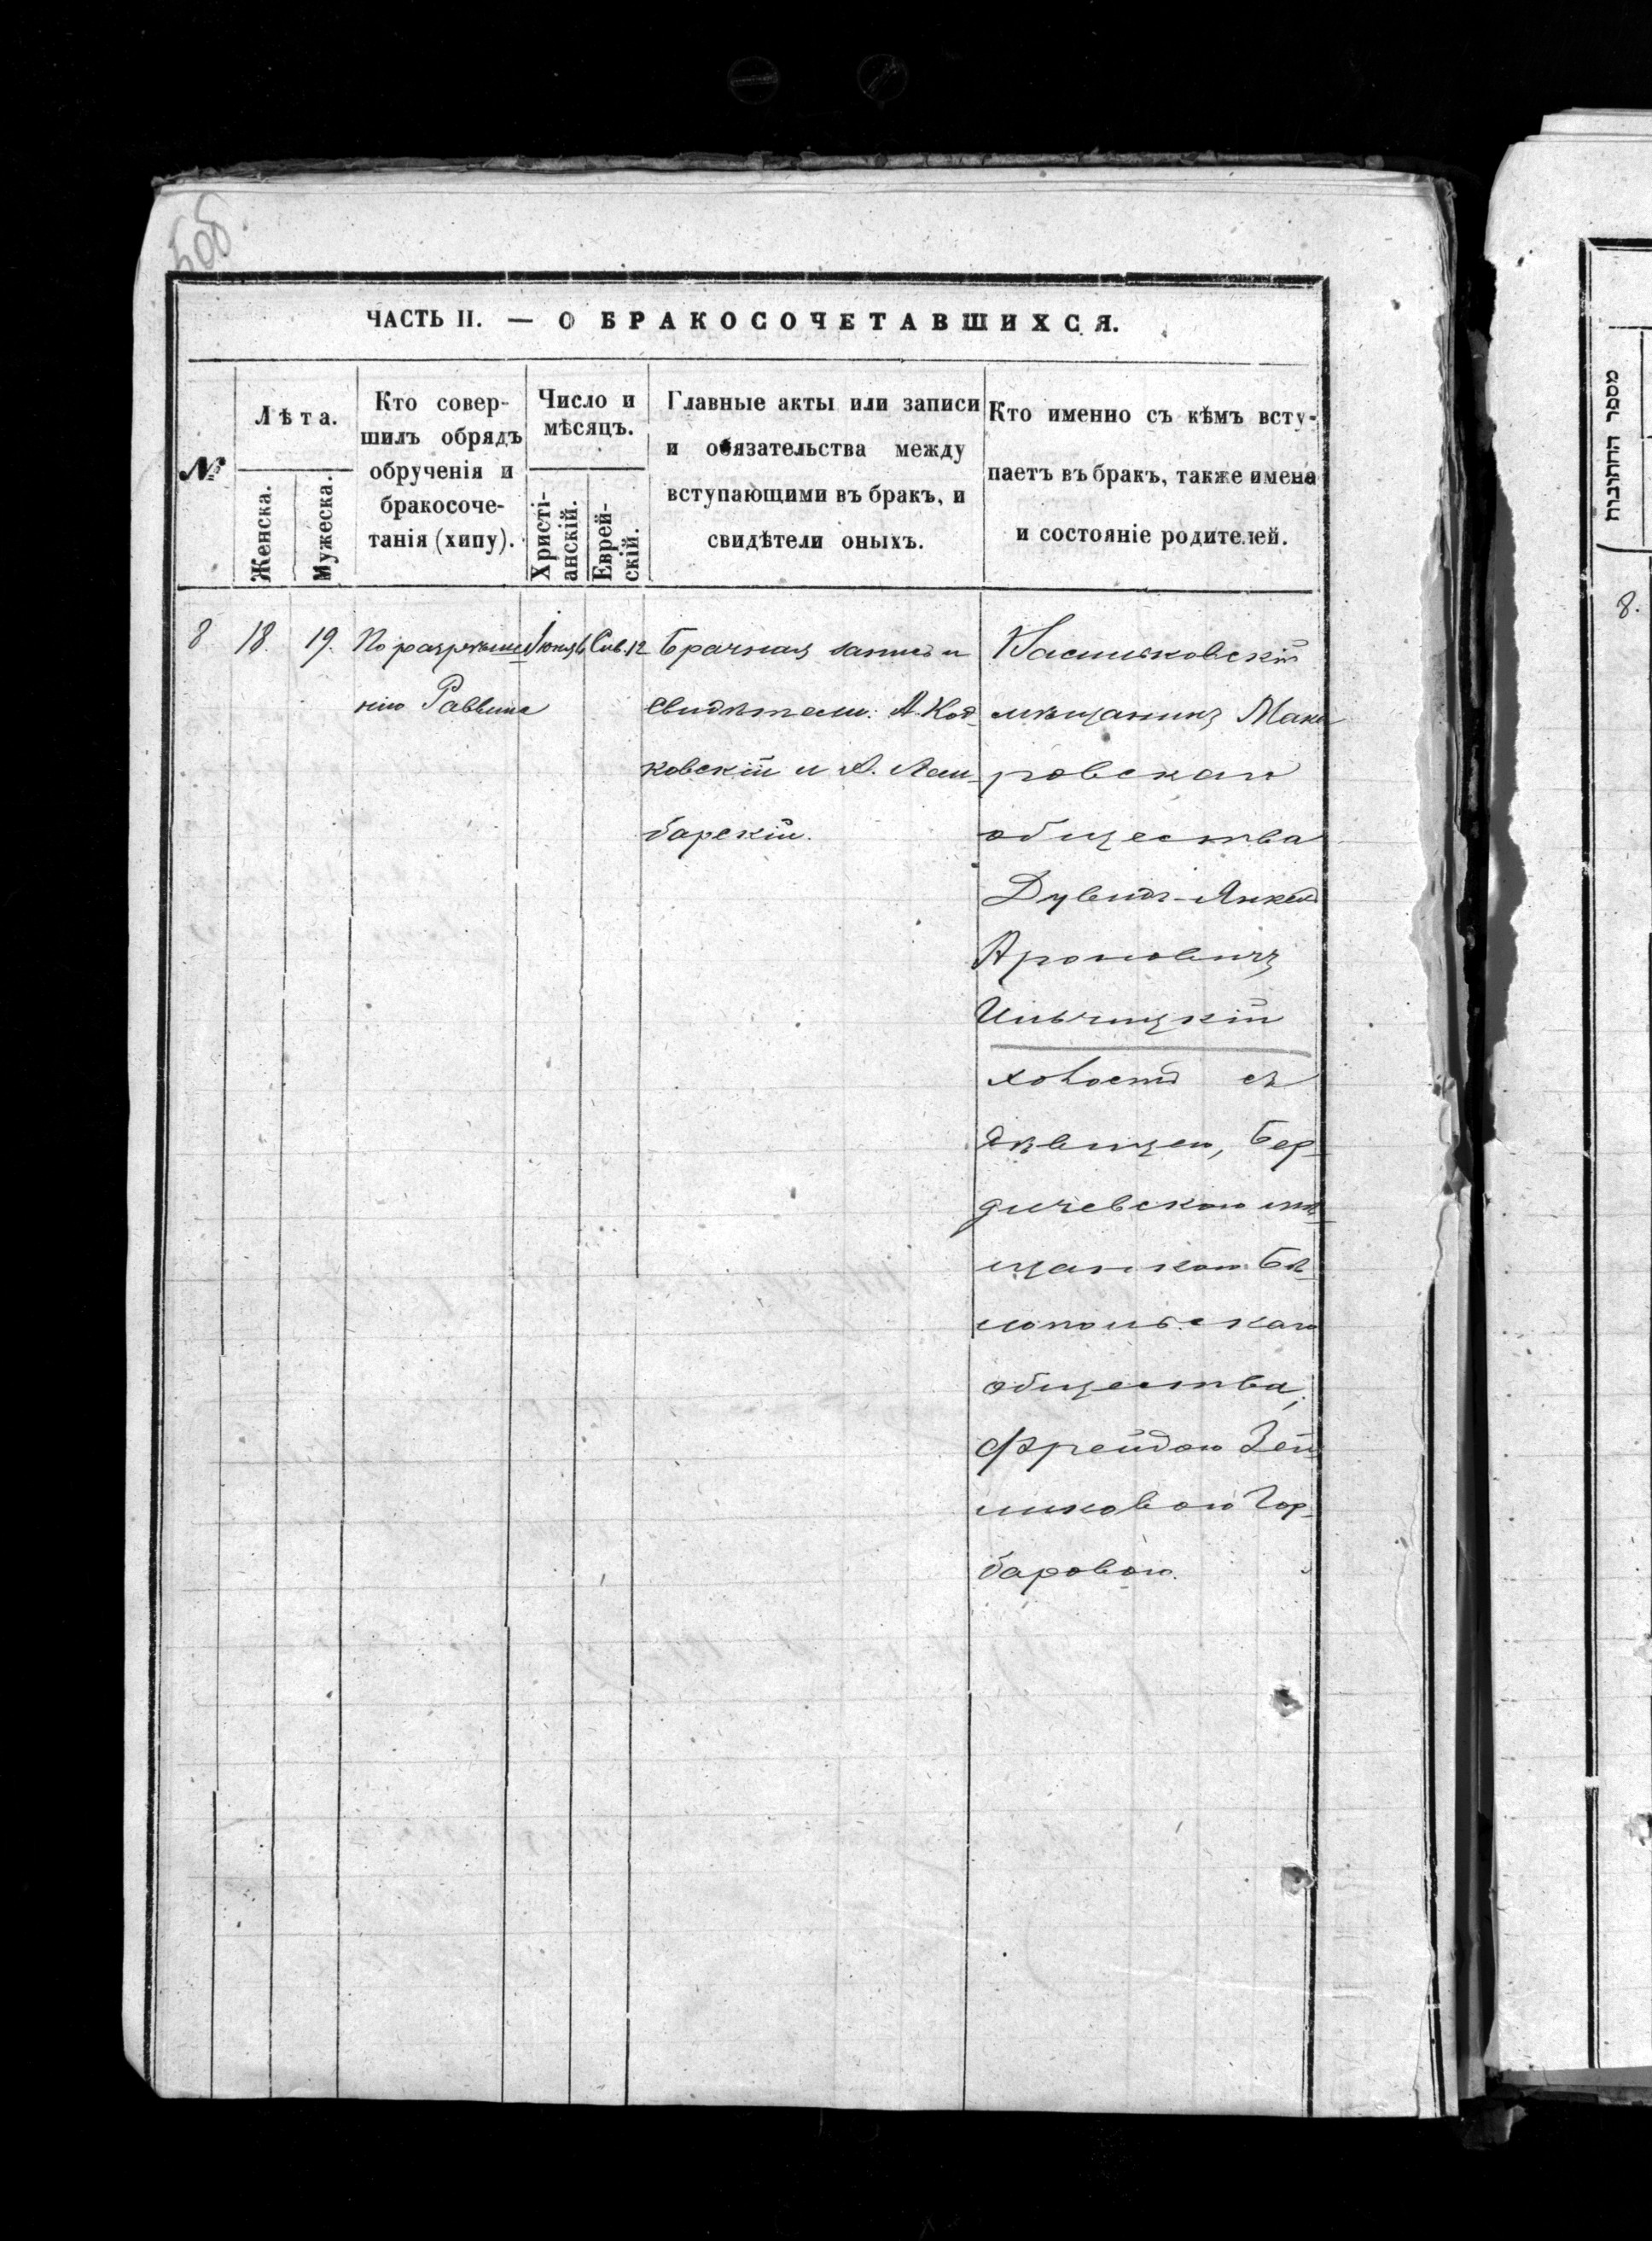 ЧАСТЬ II. — О БРАКОСОЧЕТАВШИХСЯ.
№
Лѣта.
Женска.
Мужеска.
Кто совер-
шилъ обрядъ
обрученія и
бракосоче-
танія (хипу).
Число и
мѣсяцъ.
Христі-
анскій.
Еврей-
скій.
Главные акты или записи
и обязательства между
вступающими въ бракъ, и
свидѣтели оныхъ.
Кто именно съ кѣмъ всту-
паетъ въ бракъ, также имена
и состояніе родителей.
8
18.
19.
По разрѣше
нію Раввина
Іюня 6
Сив. 12
Брачная запись и
свидѣтели: А. Код-
ковскій и А. Лам-
барскій.
Васильковскій
мѣщанинъ Мака
ровскаго
общества
Дувидъ-Янкель
Ароновичъ
Ильчицкій
холостъ съ
дѣвицею, Бер-
дичевскою мѣ-
щанкою Бѣ-
лопольскаго
общества,
Фрейдою Зей
ликовою Гор-
баровою.
מספר החתונות
8.